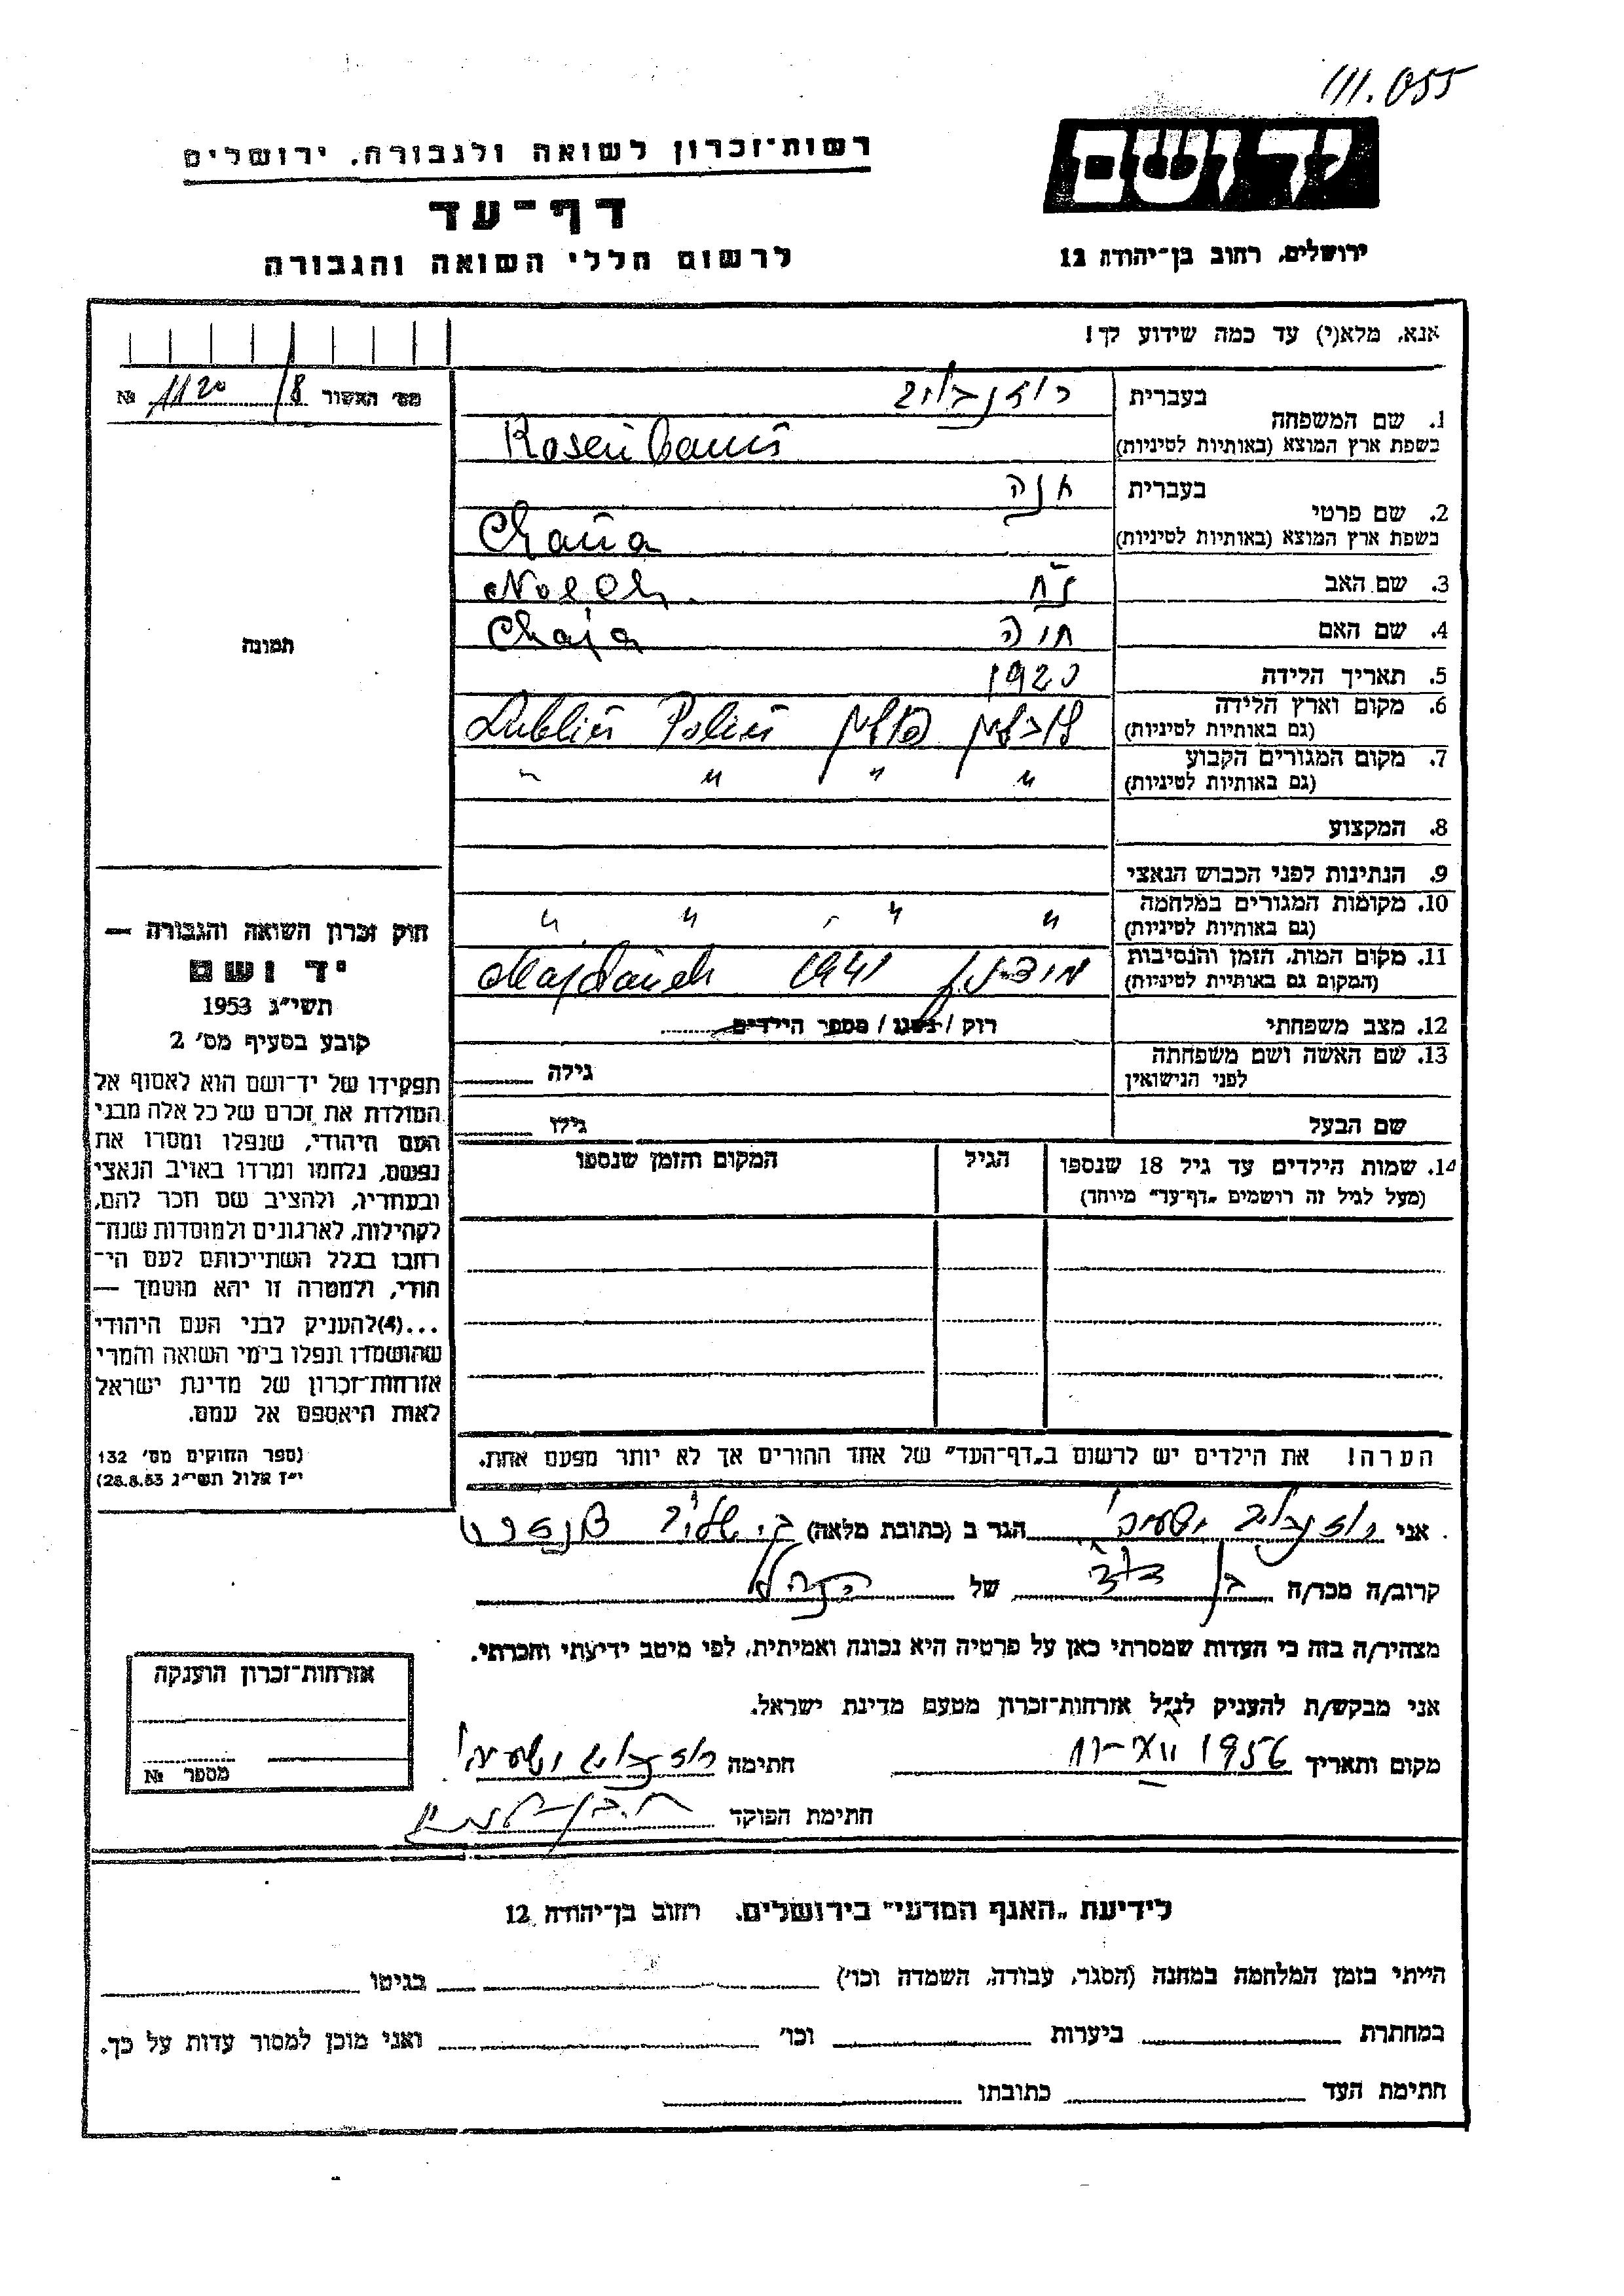 111.055
יד ושם
רשות־זכרון לשואה ולגבורה, ירושלים
דף־עד
לרשום חללי השואה והגבורה
ירושלים, רחוב בן־יהודה 12
אנא, מלא(י) עד כמה שידוע לך!
מס׳ האשור 8/ 1120 №
1. שם המשפחה
בעברית רוזנבוים
בשפת ארץ המוצא (באותיות לטיניות) Rosenbaum
2. שם פרטי
בעברית חנה
בשפת ארץ המוצא (באותיות לטיניות) Chana
3. שם האב נח Noech
4. שם האם חיה Chaja
5. תאריך הלידה 1920
6. מקום וארץ הלידה לובלין פולין Lublin Polin
(גם באותיות לטיניות)
7. מקום המגורים הקבוע " " " "
(גם באותיות לטיניות)
8. המקצוע
9. הנתינות לפני הכבוש הנאצי
10. מקומות המגורים במלחמה " " " "
(גם באותיות לטיניות)
11. מקום המות, הזמן והנסיבות 1941 Majdanek
(המקום גם באותיות לטיניות)
12. מצב משפחתי רוק / נשוי / מספר הילדים
13. שם האשה ושם משפחתה
לפני הנישואין
גילה
שם הבעל גילו
14. שמות הילדים עד גיל 18 שנספו הגיל המקום והזמן שנספו
(מעל לגיל זה רושמים „דף־עד״ מיוחד)
הערה! את הילדים יש לרשום ב„דף־העד״ של אחד ההורים אך לא יותר מפעם אחת.
תמונה
חוק זכרון השואה והגבורה —
יד ושם
תשי״ג 1953
קובע בסעיף מס׳ 2
תפקידו של יד־ושם הוא לאסוף אל
המולדת את זכרם של כל אלה מבני
העם היהודי, שנפלו ומסרו את
נפשם, נלחמו ומרדו באויב הנאצי
ובעוזריו, ולהציב שם וזכר להם,
לקהילות, לארגונים ולמוסדות שנח־
רבו בגלל השתייכותם לעם הי־
הודי, ולמטרה זו יהא מוסמך —
...(4) להעניק לבני העם היהודי
שהושמדו ונפלו בימי השואה והמרי
אזרחות־זכרון של מדינת ישראל
לאות היאספם אל עמם.
(ספר החוקים מס׳ 132
י״ז אלול תשי״ג 28.8.53)
אני רוזנבוים ישעיהו הגר ב (כתובת מלאה)
קרוב/ה מכר/ה בן דוד של
מצהיר/ה בזה כי העדות שמסרתי כאן על פרטיה היא נכונה ואמיתית, לפי מיטב ידיעתי והכרתי.
אני מבקש/ת להעניק לנ״ל אזרחות־זכרון מטעם מדינת ישראל.
מקום ותאריך 1956 חתימה רוזנבוים ישעיהו
חתימת הפוקד
אזרחות־זכרון הוענקה
מספר №
לידיעת „האגף המדעי״ בירושלים, רחוב בן־יהודה 12
הייתי בזמן המלחמה במחנה (הסגר, עבודה, השמדה וכו׳) בגיטו
במחתרת ביערות וכו׳ ואני מוכן למסור עדות על כך.
חתימת העד כתובתו